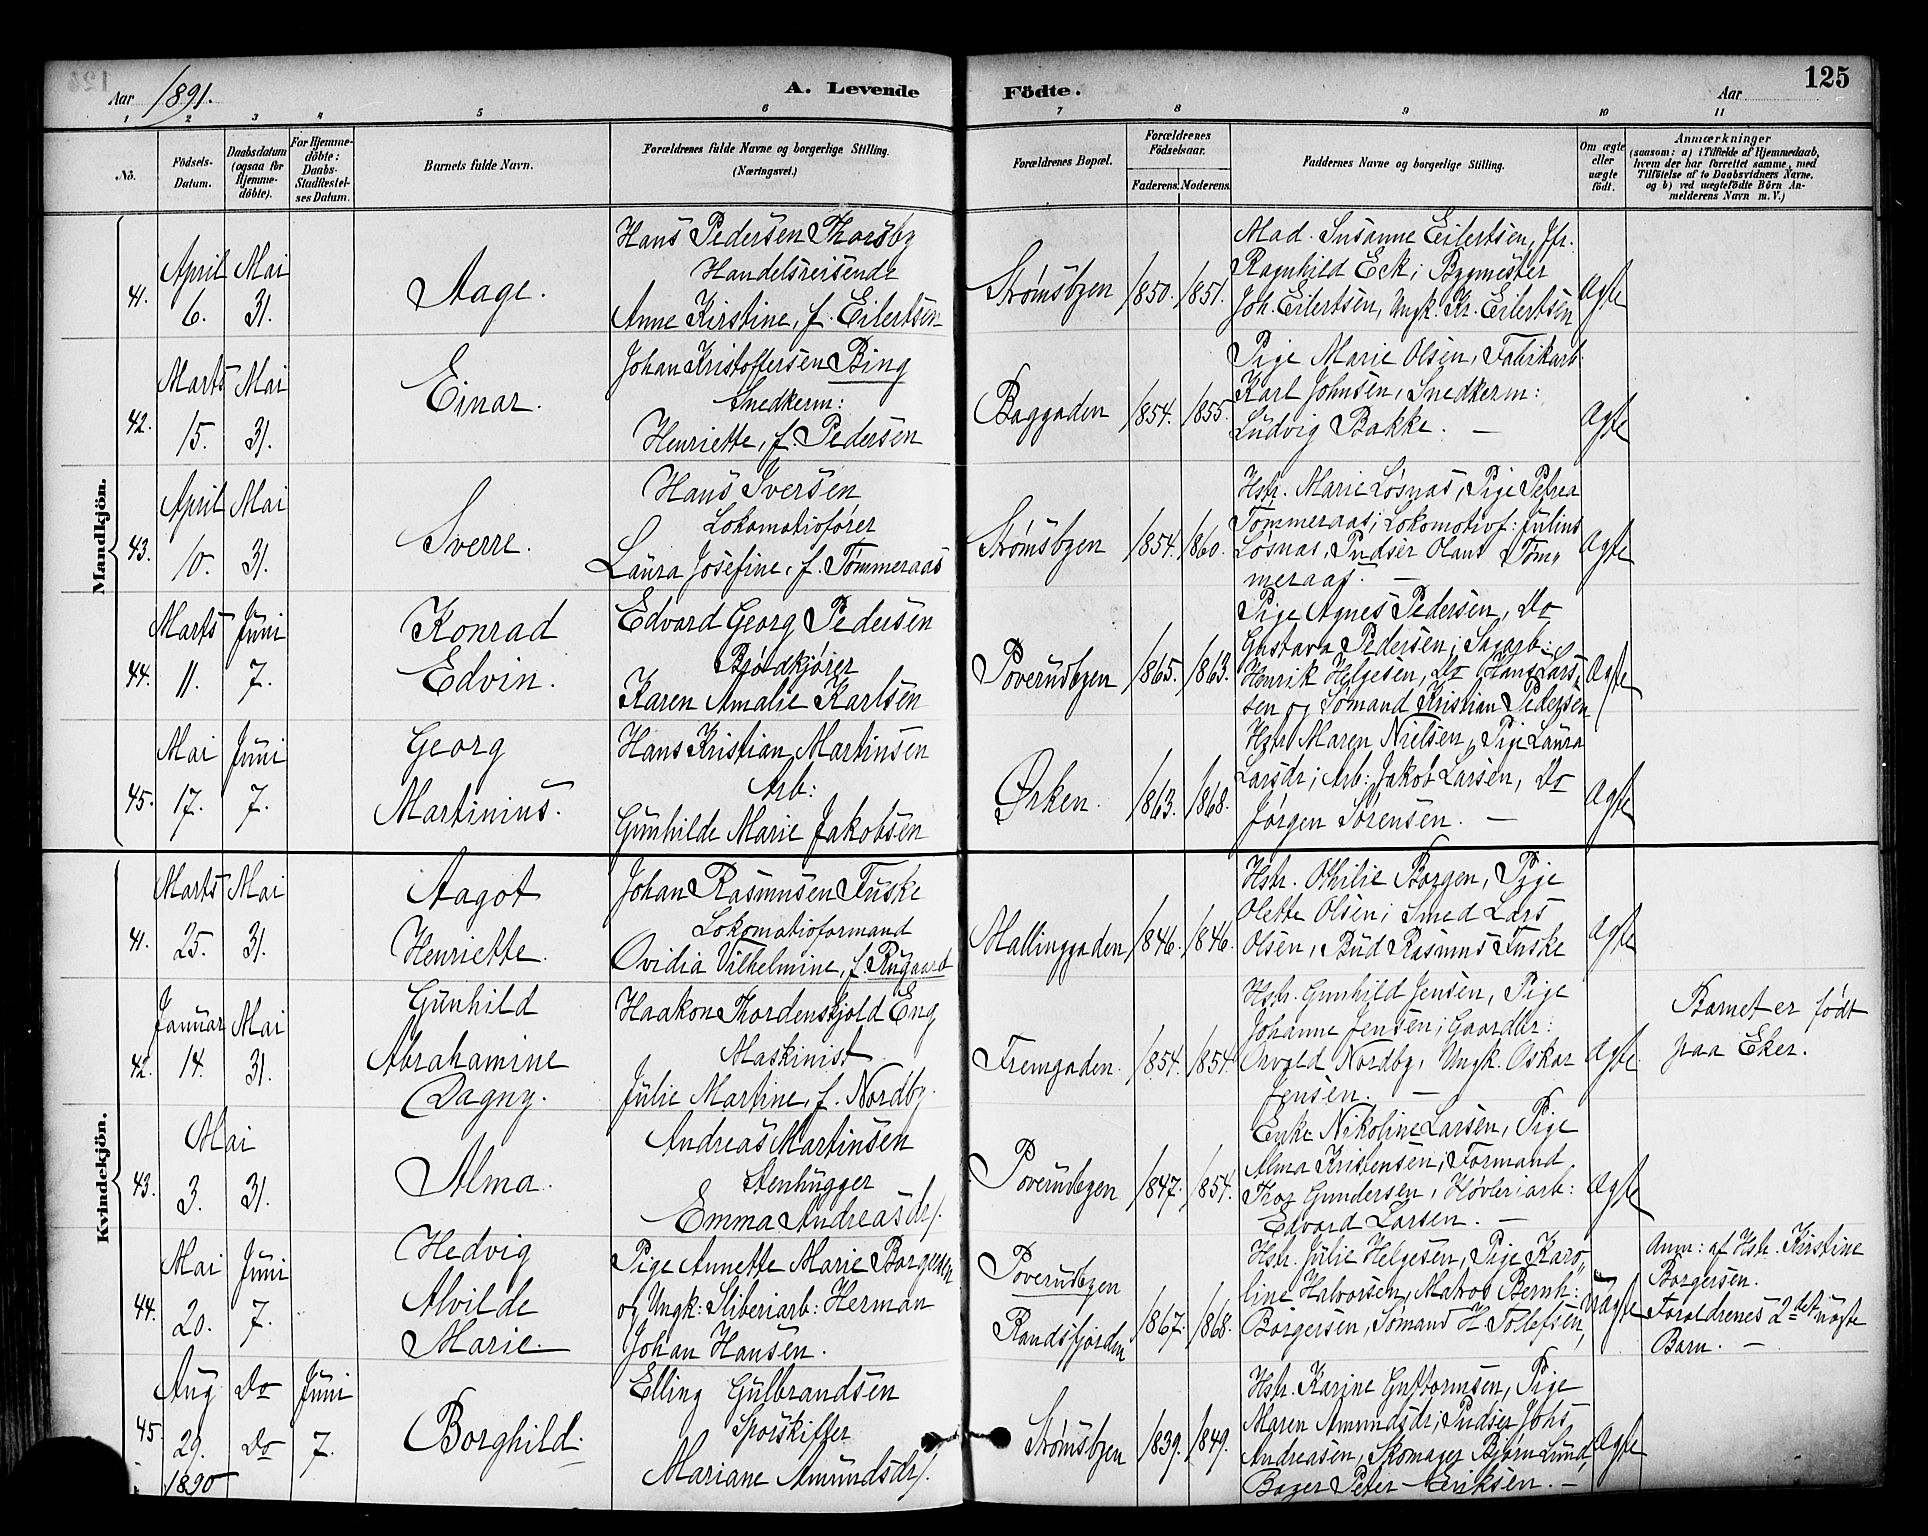 Aar 1891.
A. Levende
Fødte.
Aar
125
1 2 3 4 5 6 7 8 9 10 11
No.
Fødsels-Datum.
Daabsdatum (ogsaa for Hjemme-døbte).
For Hjemme-døbte: Daabs-Stadfestel-ses Datum.
Barnets fulde Navn.
Forældrenes fulde Navne og borgerlige Stilling.
(Næringsvei.)
Forældrenes Bopæl.
Forældrenes Fødselsaar.
Faderens. Moderens.
Faddernes Navne og borgerlige Stilling.
Om ægte eller uægte født.
Anmærkninger
(saasom: a) i Tilfælde af Hjemmedaab,
hvem der har forrettet samme, med
Tilføielse af to Daabsvidners Navne.
og b) ved uægtefødte Børn An-
melderens Navn m. V.)
Mandkjön.
41. April 6. Mai 31.
Aage.
Hans Pedersen Thorsby
Handelsreisende
Anne Kirstine, f. Eilertsen
Strømsbyen 1850. 1851.
Mad. Susanne Eilertsen, Jfr.
Ragnhild Eck; Bygmester
Joh. Eilertsen, Ungk. Kr. Eilertsen
Ægte
42. Marts 15. Mai 31.
Einar.
Johan Kristoffersen Bing
Snedkerm:
Henriette, f. Pedersen
Baggaden 1854. 1855.
Pige Marie Olsen, Fabrikarb.
Karl Johnsen, Snedkerm:
Ludvig Bakke. —
Ægte
43. April 10. Mai 31.
Sverre.
Hans Iversen
Lokomotivfører
Laura Josefine, f. Tømmeraas
Strømsbyen 1854. 1860.
Hstr. Marie Løsnas, Pige Petrea
Tømmeraas; Lokomotivf: Julius
Løsnas, Pudser Olaus Tøm„
meraas. —
Ægte
44. Marts 11. Juni 7.
Konrad
Edvin.
Edvard Georg Pedersen
Bjørdkjører
Karen Amalie Karlsen
Poverudbyen 1865. 1863.
Pige Agnes Pedersen, Do
Gustava Pedersen; Sagarb.:
Henrik Helgesen, Do Hans Lars„
sen og Sømand Kristian Pedersen
Ægte
45. Mai 17. Juni 7.
Georg
Martinius.
Hans Kristian Martinsen
Arb:
Gunhilde Marie Jakobsen
Ørken. 1863. 1868.
Hstr Maren Nielsen, Pige Laura
Larsdr; Arb: Jakob Larsen, Do
Jørgen Sørensen. —
Ægte
Kvindekjön.
41. Marts 25. Mai 31.
Aagot
Henriette.
Johan Rasmusen Fuske
Lokomotivformand
Ovidia Vilhelmine, f. Rugaard
Hallinggaden 1846. 1846.
Hstr. Othilie Borgen, Pige
Olette Olsen; Smed Lars
Olsen, Bud Rasmus Fuske
Ægte
42. Januar 14. Mai 31.
Gunhild
Abrahamine
Dagny.
Haakon Thordenskjold Eng
Maskinist
Julie Martine, f. Nordby.
Fremgaden. 1854. 1854.
Hstr. Gunhild Jensen, Pige
Johanne Jensen; Gaardbr:
Orvald Nordby, Ungk. Oskar
Jensen. —
Ægte.
Barnet er født
paa Eker.
43. Mai 3. 31.
Alma.
Andreas Martinsen
Stenhugger
Emma Andreasdr.
Poverudbyen 1847. 1854.
Enke Nikoline Larsen, Pige
Alma Kristensen; Formand
Thor Gundersen, Høvleriarb:
Edvard Larsen. —
Ægte
44. Mai 20. Juni 7.
Hedvig
Alvilde
Marie.
Pige Annette Marie Borgersen
og Ungk: Sliberiarb: Herman
Johan Hansen.
Poverudbyen
Randsfjorden 1867. 1868.
Hstr. Julie Helgesen, Pige Karo„
line Halvorsen, Matros Bernh:
Borgersen, Sømand H. Tollefsen,
Uægte
Anm: af Hstr. Kristine
Borgersen.
Foreldrenes 2det uægte
Barn. —
45. Aug 29. 1890 Do Do Juni 7.
Borghild.
Elling Gulbrandsen
Sporskifter
Mariane Amundsdr.
Strømsbyen 1839. 1849.
Hstr. Karine Guttormsen, Pige
Maren Amundsdr; Pudser Johs
Andreasen, Skomager Bjørn Lund,
Bager Peter Eriksen. —
Ægte